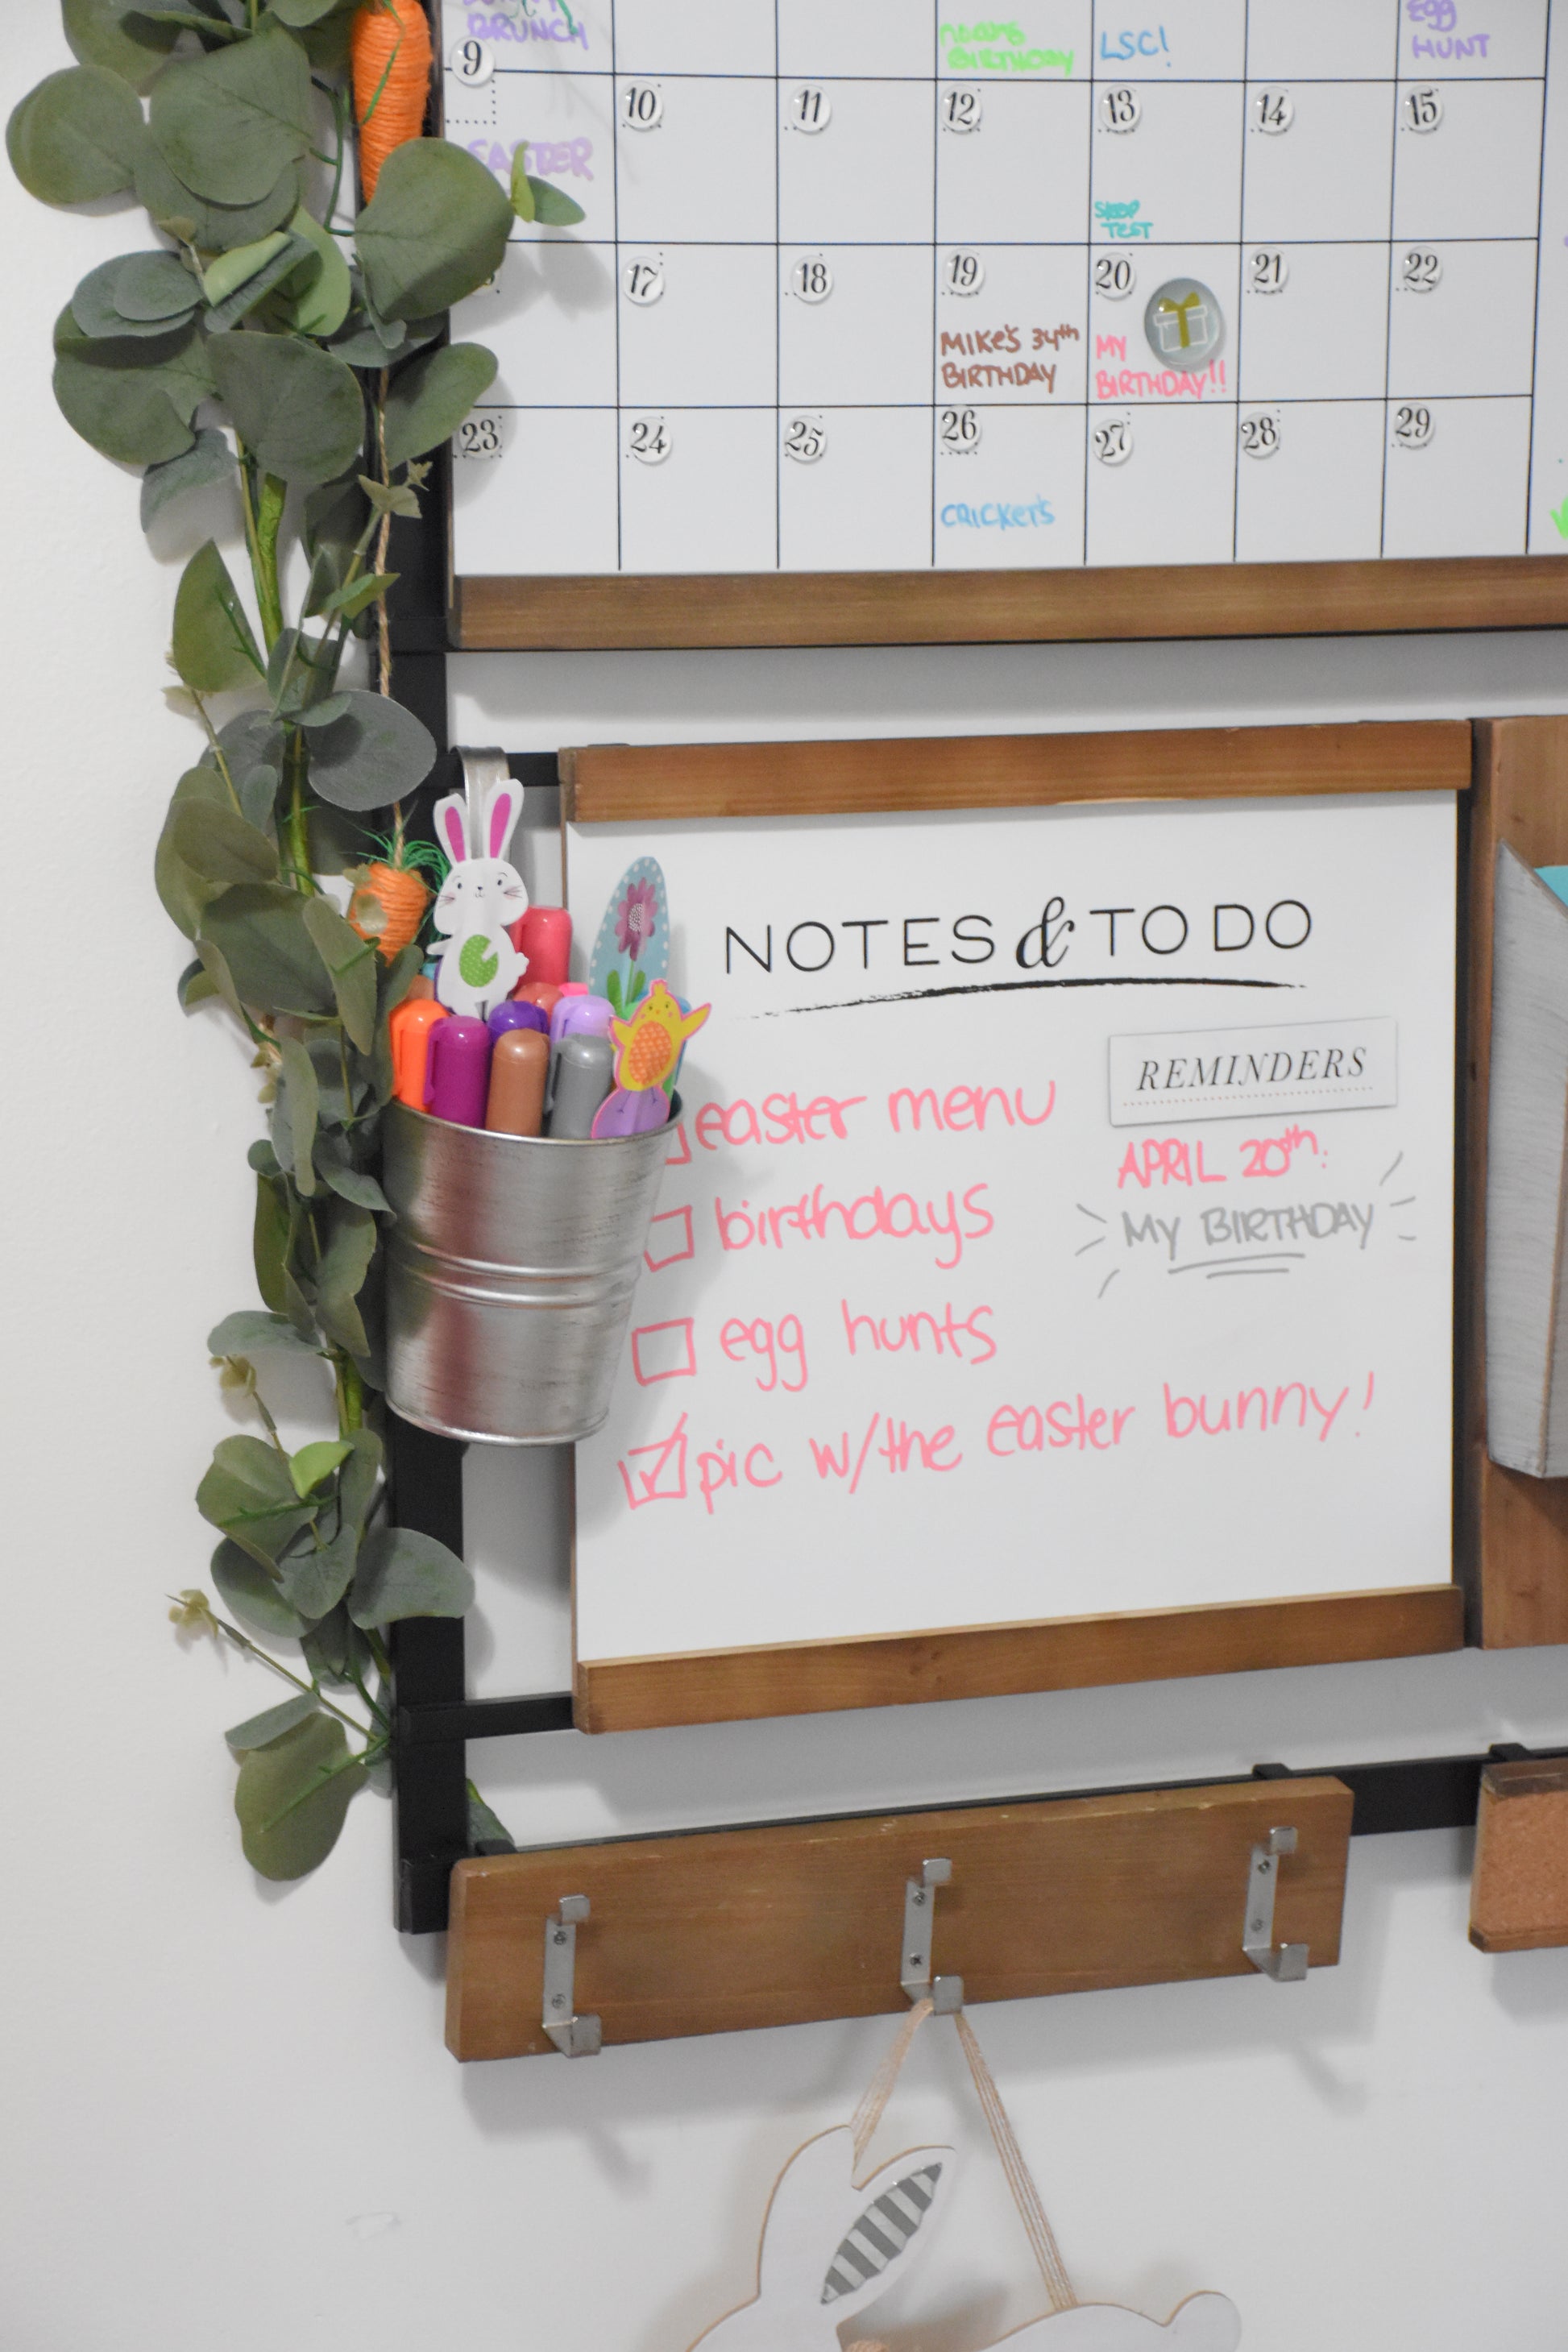 BRUNCH
BIRTHDAY
LSC!
EGG
HUNT
9
10
11
12
13
14
15
EASTER
TEST
17
18
19
20
21
22
MIKE'S 34th
BIRTHDAY
MY
BIRTHDAY!!
23
24
25
26
27
28
29
CRICKETS
NOTES & TO DO
REMINDERS
easter menu
APRIL 20th:
MY BIRTHDAY
birthdays
egg hunts
pic w/the easter bunny!